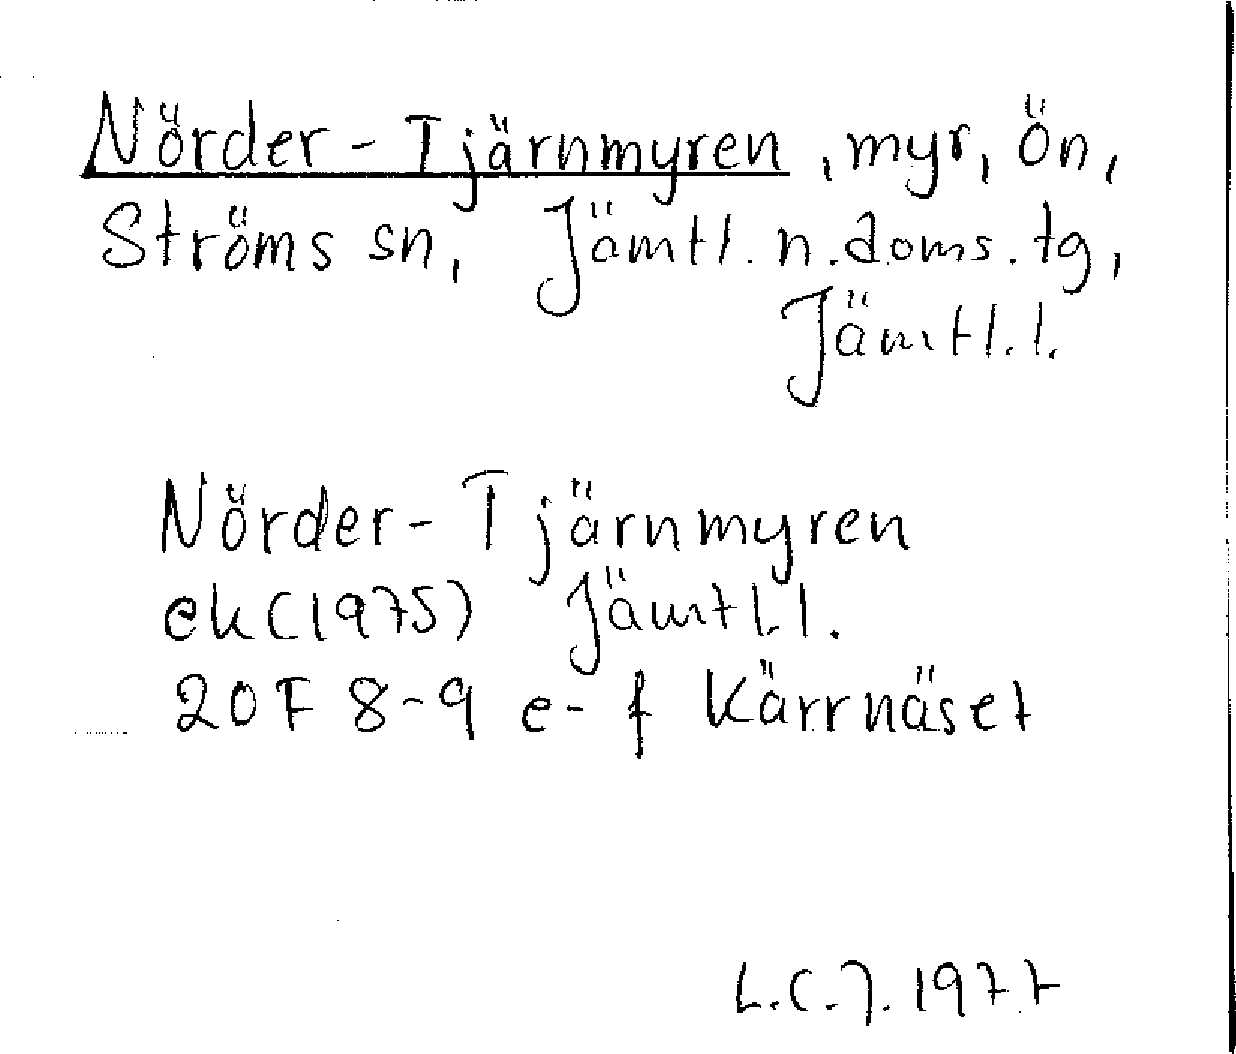 Nörder-Tjärnmyren, myr, Ön,
Ströms sn, Jämtl. n. doms. tg,
Jämtl. l.
Nörder-Tjärnmyren
ek (1975) Jämtl. l.
20F 8-9 e-f Kärrnäset
L.C.J. 1977